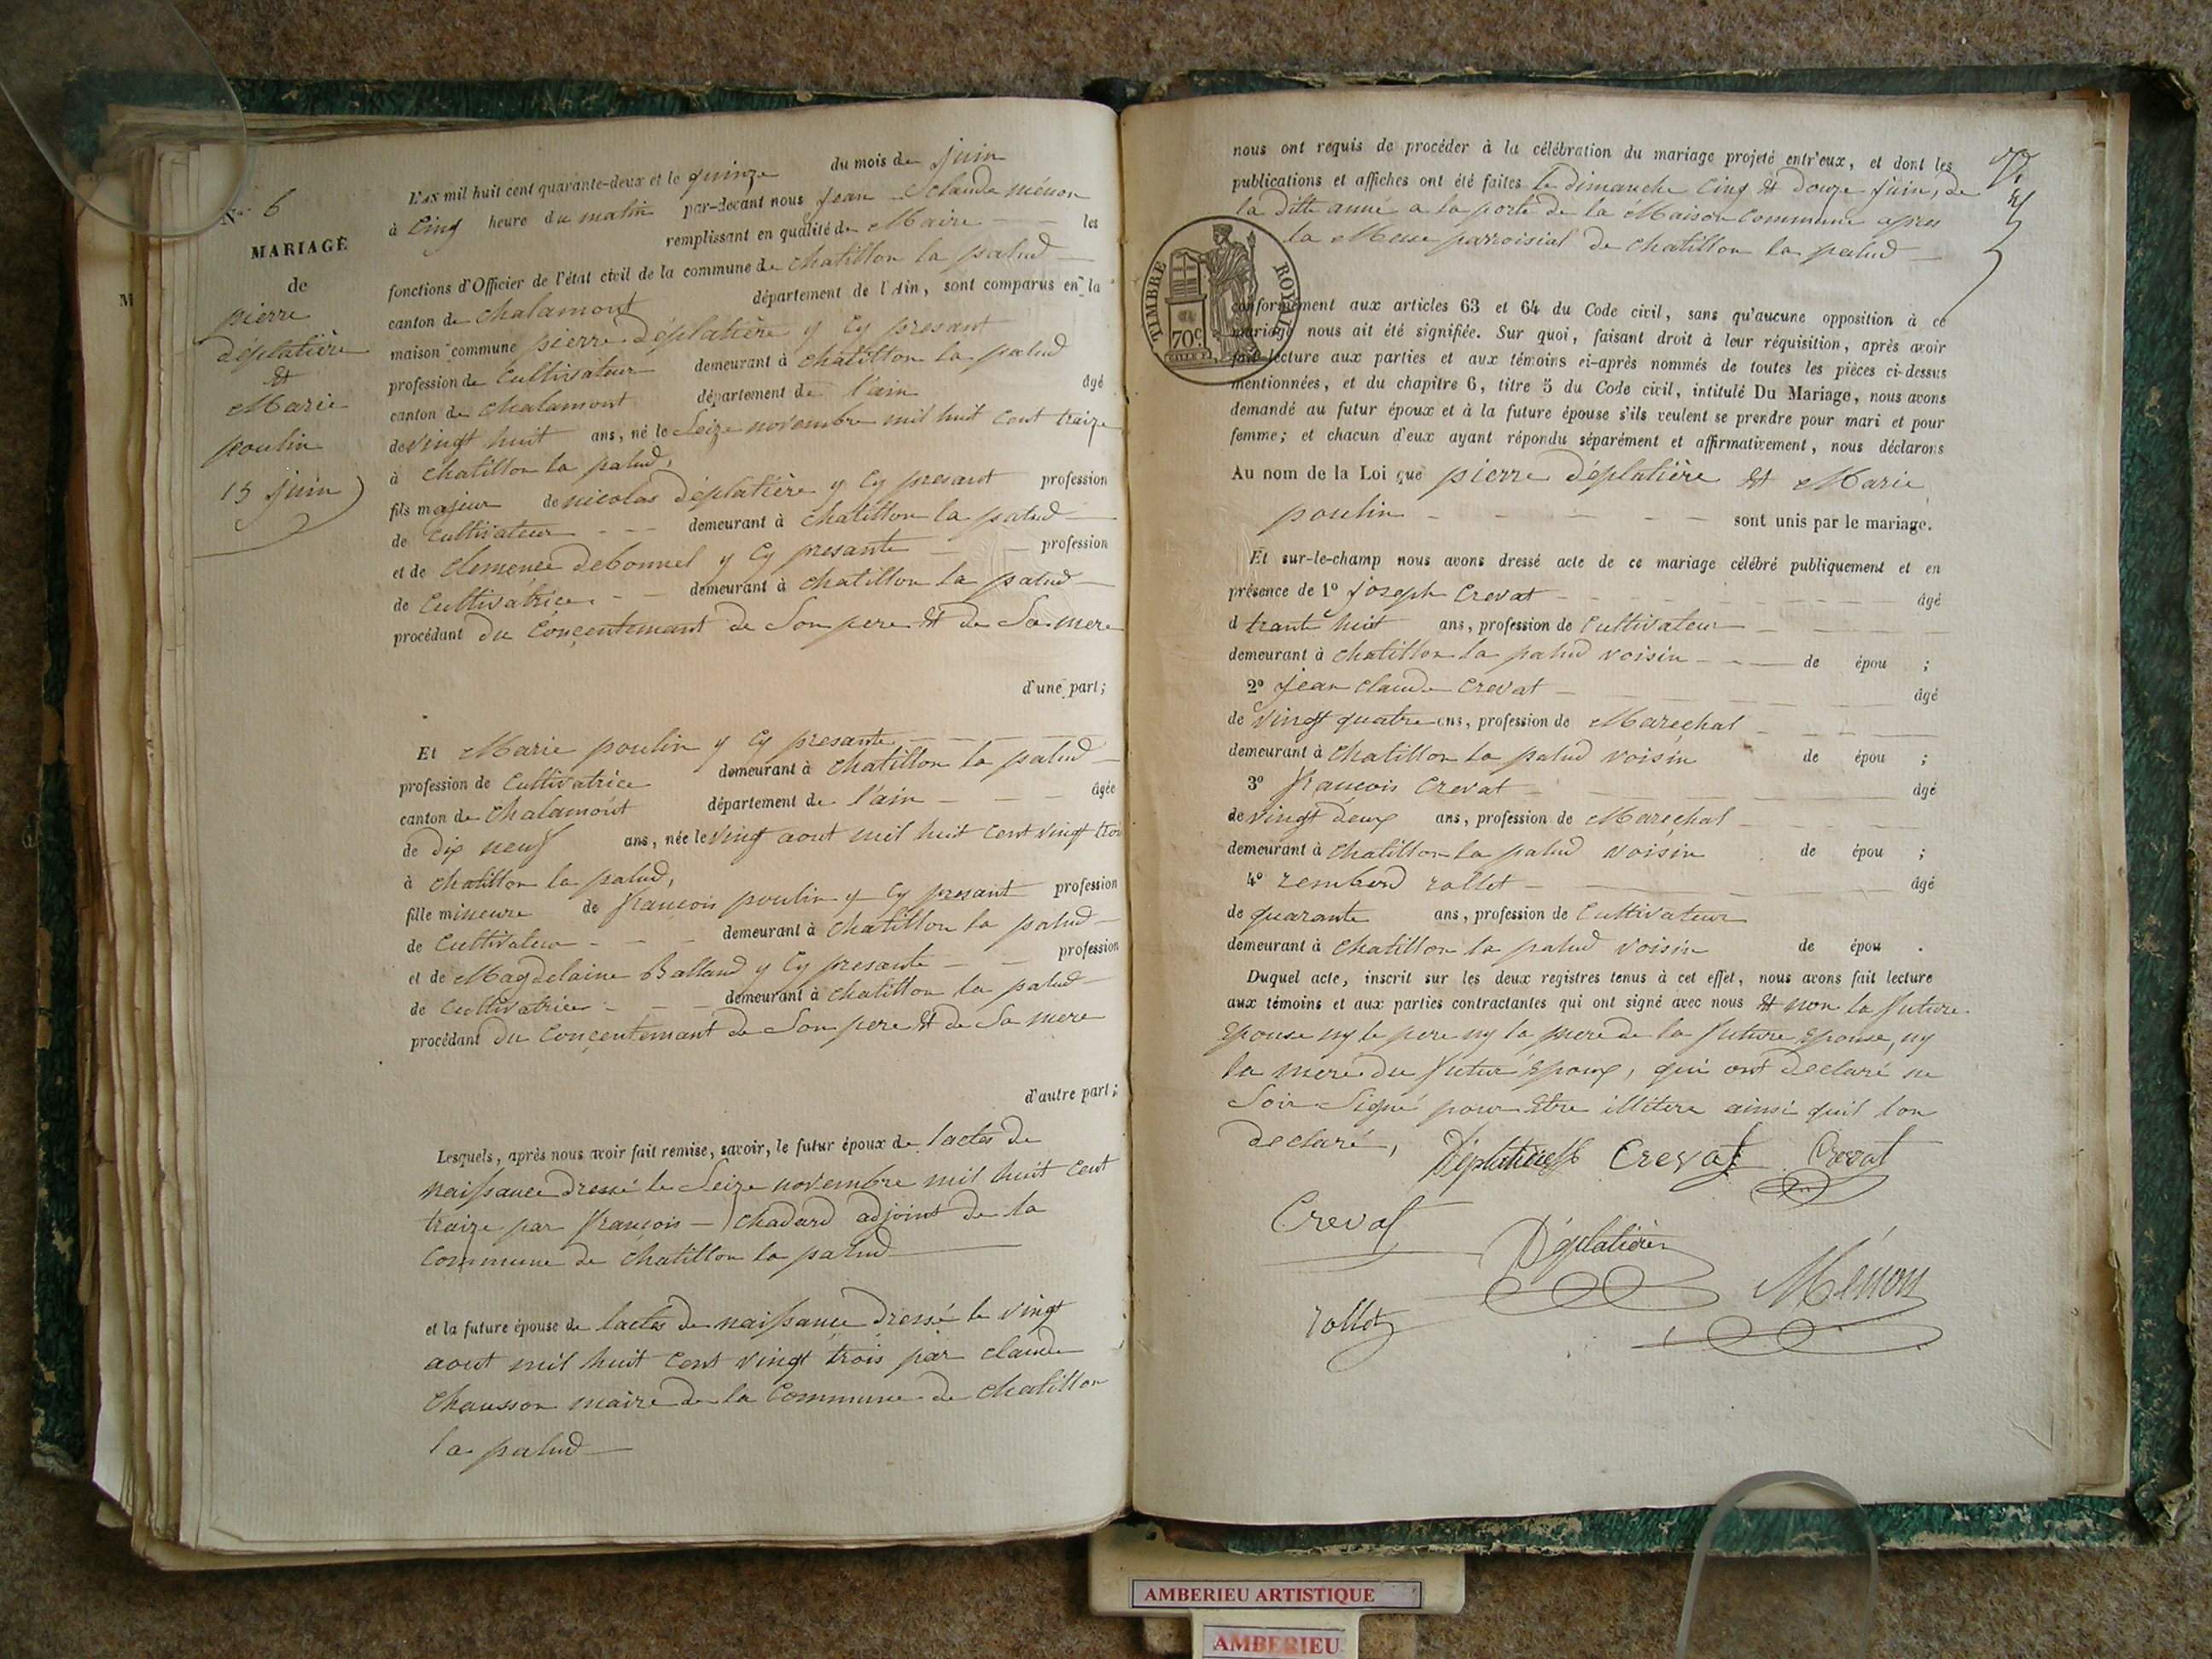 N.º 6
MARIAGE
de
pierre
déplatière
et
Marie
poulin
15 juin
M
L'AN mil huit cent quarante-deux et le quinze du mois de juin
à Cinq heure du matin par-devant nous jean Claude ménon
remplissant en qualité de Maire les
fonctions d'Officier de l'état civil de la commune de chatillon la palud
canton de chalamont département de l'Ain, sont comparus en la
maison commune pierre déplatière y Cy presant
profession de Cultivateur demeurant à chatillon la palud
canton de chalamont département de l'ain âgé
de vingt huit ans, né le Seize novembre mil huit cent traize
à chatillon la palud,
fils majeur de nicolas déplatière y Cy presant profession
de Cultivateur demeurant à chatillon la palud
et de Clemence debonnel y Cy presante profession
de Cultivatrice demeurant à chatillon la palud
procédant du Conçentemant de Son pere et de Sa mere
d'une part;
Et Marie poulin y Cy presante
profession de Cultivatrice demeurant à chatillon la palud
canton de Chalamont département de l'ain âgée
de dix neuf ans, née le vingt aout mil huit cent vingt trois
à chatillon la palud,
fille mineure de françois poulin y Cy presant profession
de Cultivateur demeurant à chatillon la palud
et de Magdelaine Balland y Cy presante profession
de Cultivatrice demeurant à chatillon la palud
procédant du Conçentemant de Son pere et de Sa mere
d'autre part;
Lesquels, après nous avoir fait remise, savoir, le futur époux de lactes de
naissance dressé le Seize novembre mil huit cent
traize par françois chadard adjoint de la
Commune de chatillon la palud
et la future épouse de lactes de naissance dressé le vingt
aout mil huit cent vingt trois par claude
chausson maire de la Commune de chatillon
la palud
nous ont requis de procéder à la célébration du mariage projeté entr'eux, et dont les
publications et affiches ont été faites le dimanche Cinq et douze juin, de
la ditte anné a la porte de la Maison Commune apres
la Messe parroisial de chatillon la palud
TIMBRE ROYAL
70c
conformément aux articles 63 et 64 du Code civil, sans qu'aucune opposition à ce
mariage nous ait été signifiée. Sur quoi, faisant droit à leur réquisition, après avoir
fait lecture aux parties et aux témoins ci-après nommés de toutes les pièces ci-dessus
mentionnées, et du chapitre 6, titre 5 du Code civil, intitulé Du Mariage, nous avons
demandé au futur époux et à la future épouse s'ils veulent se prendre pour mari et pour
femme; et chacun d'eux ayant répondu séparément et affirmativement, nous déclarons
Au nom de la Loi que pierre déplatière et Marie
poulin sont unis par le mariage.
Et sur-le-champ nous avons dressé acte de ce mariage célébré publiquement et en
présence de 1º joseph Crevat âgé
d trante huit ans, profession de Cultivateur
demeurant à chatillon la palud voisin de épou ;
2º jean claude Crevat âgé
de vingt quatre ans, profession de Marechal
demeurant à chatillon la palud voisin de épou ;
3º françois Crevat âgé
de vingt deux ans, profession de Maréchal
demeurant à chatillon la palud voisin de épou ;
4º rembert rollet âgé
de quarante ans, profession de Cultivateur
demeurant à chatillon la palud voisin de épou .
Duquel acte, inscrit sur les deux registres tenus à cet effet, nous avons fait lecture
aux témoins et aux parties contractantes qui ont signé avec nous et non la future
epouse ny le pere ny la mere de la future epouse, ny
la mere du futur epoux, qui ont declaré ne
Soir Signé pour etre illitere ainsi quil lon
declaré,
Déplatière Crevat Crevat
Crevat
Déplatière
Ménon
rollet
AMBERIEU ARTISTIQUE
AMBERIEU